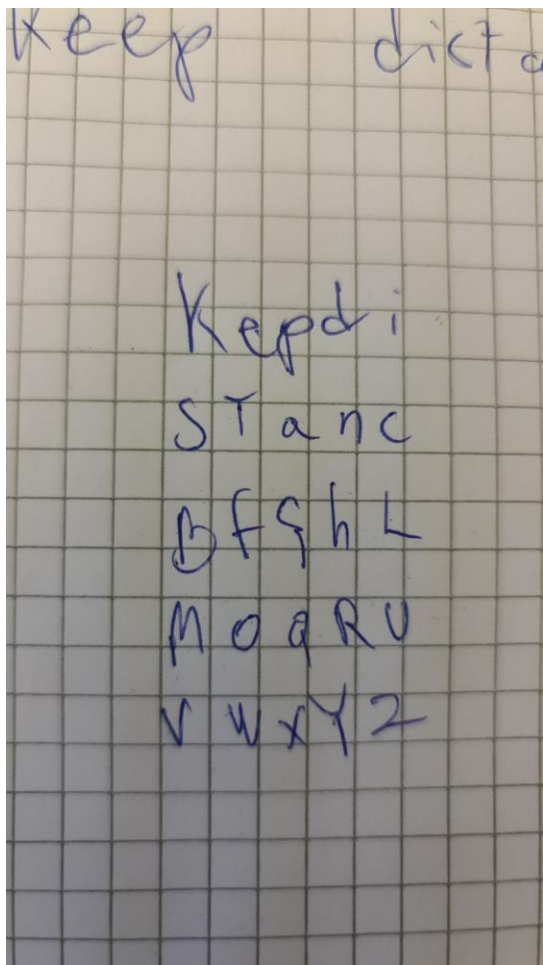 Keep dicta
K e p d i
S T a n c
B f g h L
M O q R U
V W X Y Z